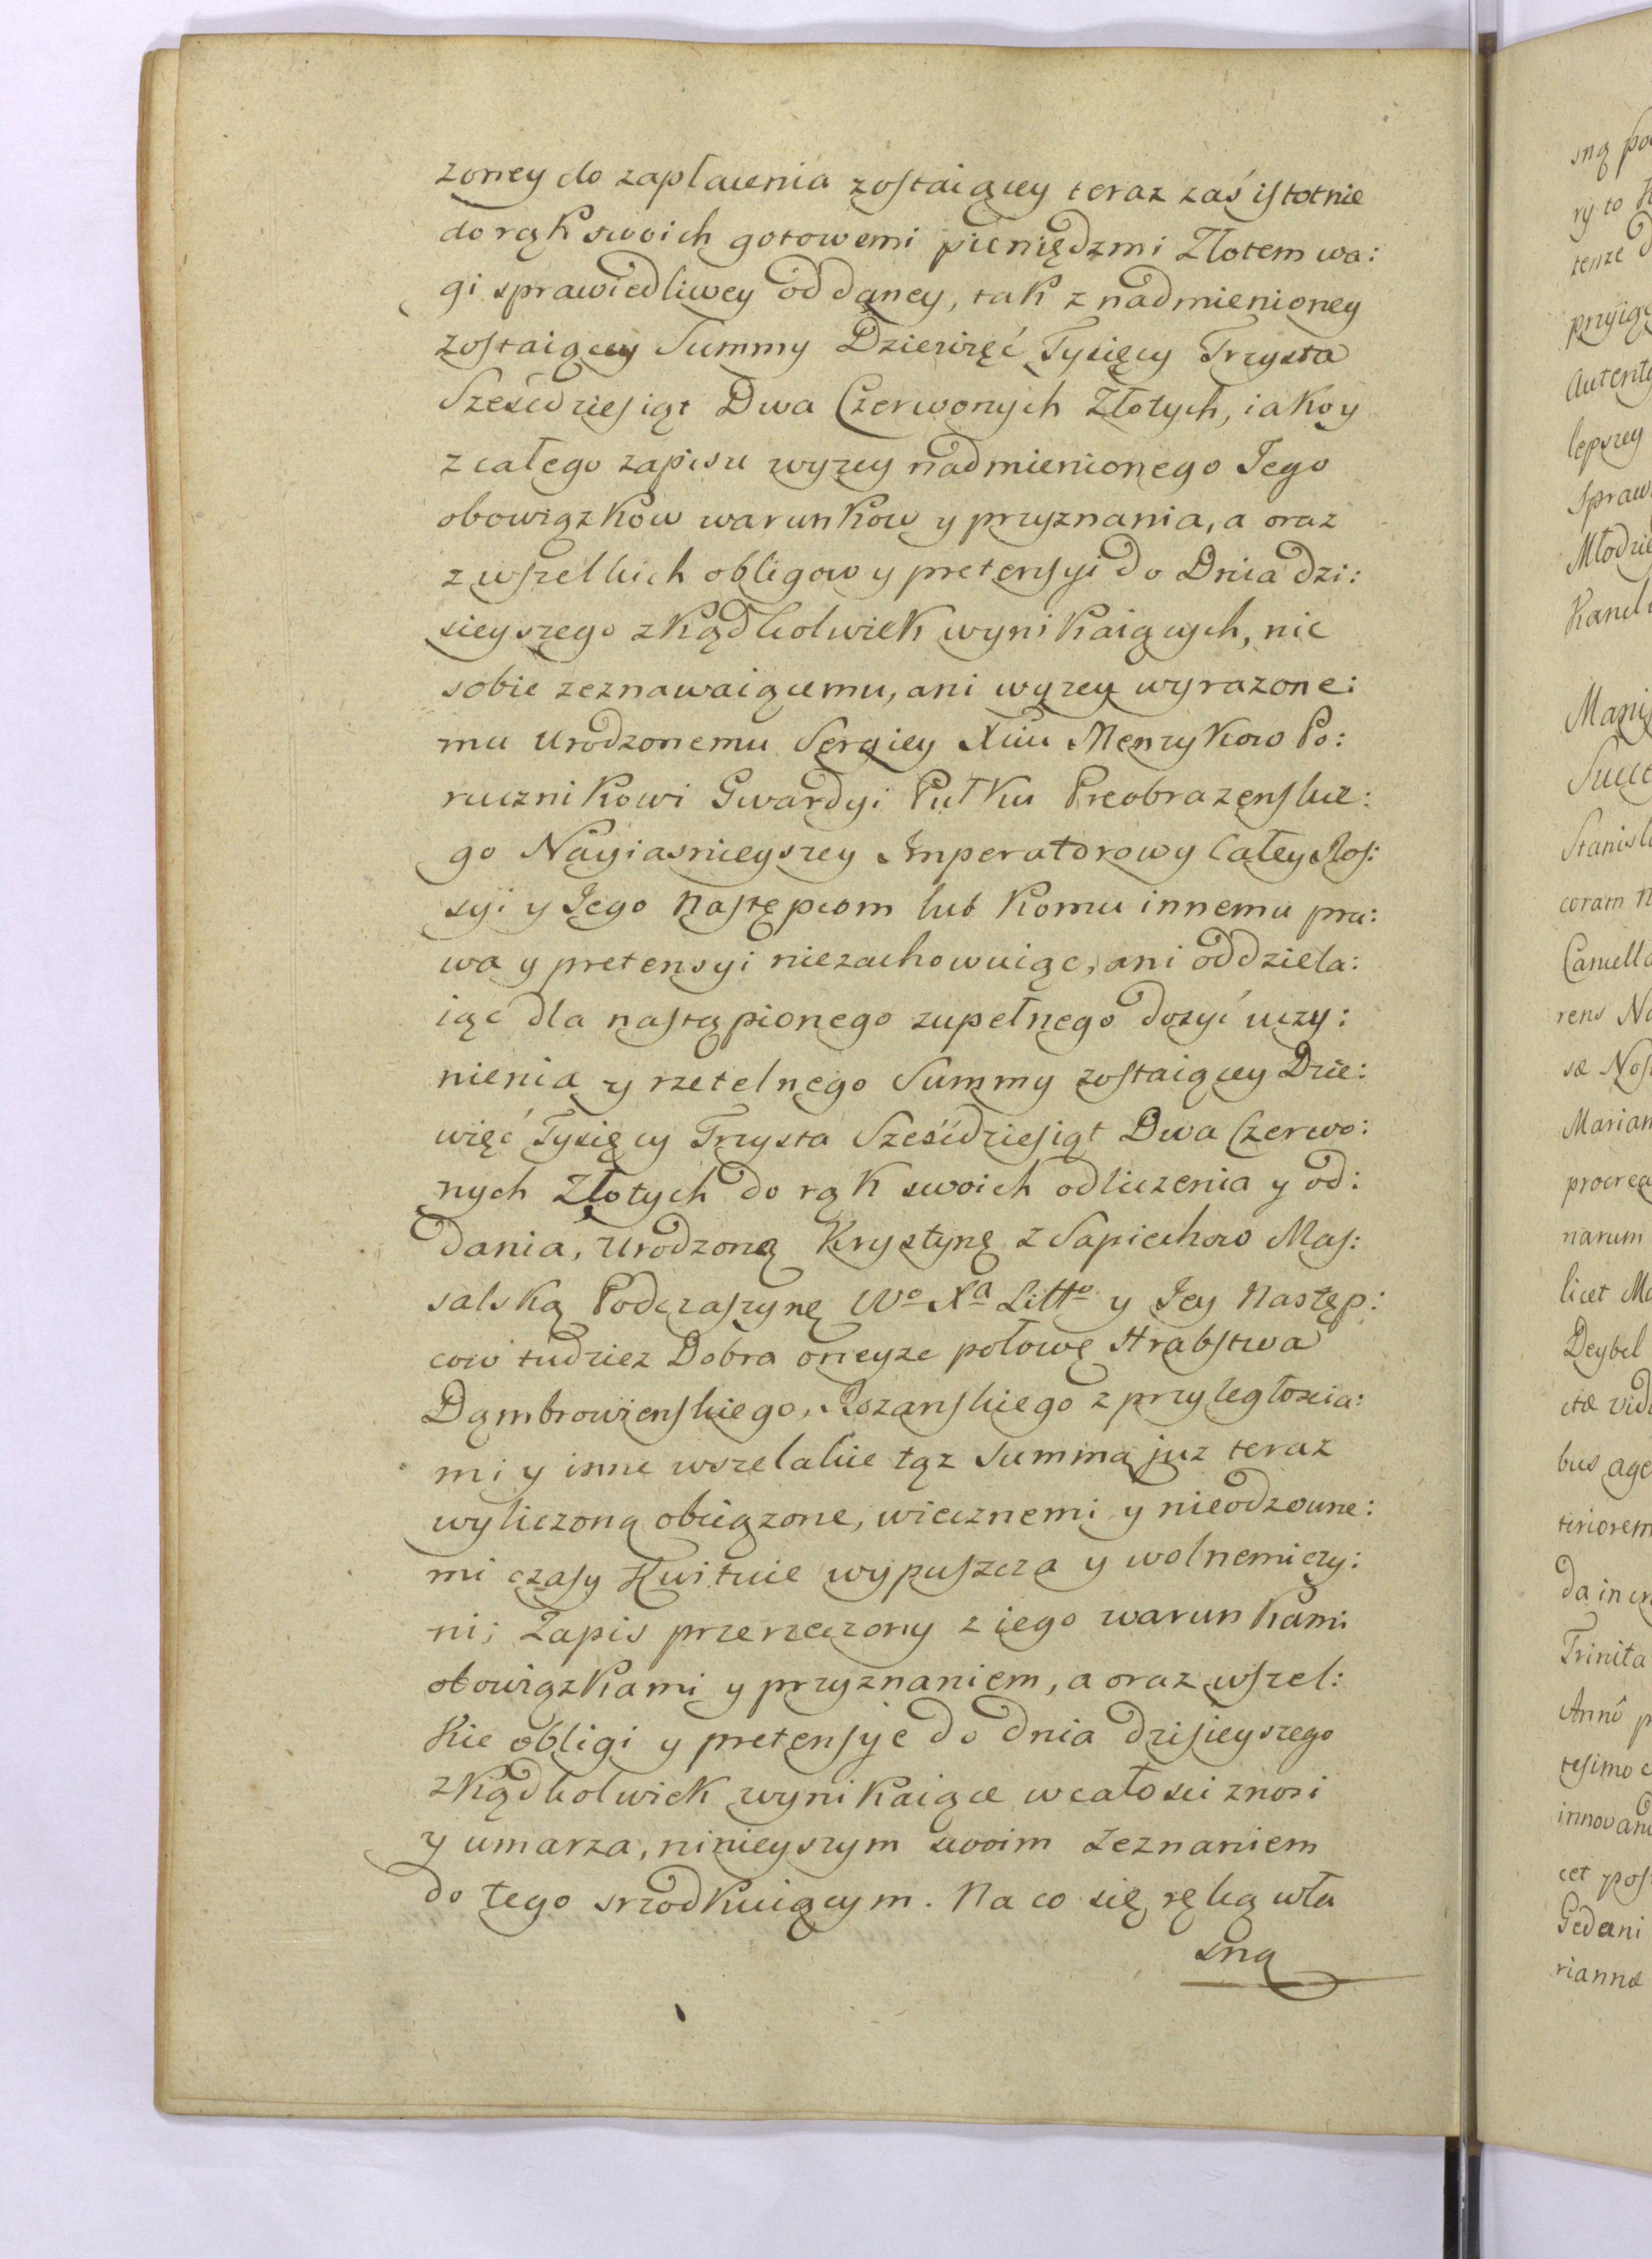 zoney do zapłacenia zostaiącey teraz zaś istotnie
do rąk swoich gotowemi pieniędzmi Złotem wa:
gi sprawiedliwey oddaney, tak z nadmienioney
zostaiącey Summy Dziewięć Tysięcy Trzysta
Sześćdziesiąt Dwa Czerwonych Złotych, iako y
z całego zapisu wyzey nadmienionego Jego
obowiązkow warunkow y przyznania, a oraz
z wszelkich obligow y pretensyi do Dnia dzi:
sieyszego zkądkolwiek wynikaiących, nic
sobie zeznawaiącemu, ani wyzey wyrazone:
mu Urodzonemu Sergiey Xciu Menzykow Po:
rucznikowi Gwardyi Pułku Preobrazenskie:
go Nayiasnieyszey Imperatorowy Całey Ros:
syi y Jego Następcom lub komu innemu pra:
wa y pretensyi niezachowuiąc, ani oddziela:
iąc dla nastąpionego zupełnego dosyć uczy:
nienia y rzetelnego Summy zostaiącey Dzie:
więć Tysięcy Trzysta Sześćdziesiąt Dwa Czerwo:
nych Złotych do rąk swoich odliczenia y od:
dania, Urodzoną Krystynę z Sapiehow Mas:
salską Podczaszynę Wo Xa Litto y Jey Następ:
cow tudziez Dobra oneyze połowę Hrabstwa
Dąmbrowienskiego, Rozanskiego z przyległoscia:
mi y inne wszelakie tąz Summą juz teraz
wyliczoną obciązone, wiecznemi y nieodzowne:
mi czasy Kwituie wypuszcza y wolnemi czy:
ni; Zapis przerzeczony z iego warunkami
obowiązkami y przyznaniem, a oraz wszel:
kie obligi y pretensye do dnia dzisieyszego
zkądkolwiek wynikaiące w całosci znosi
y umarza, ninieyszym swoim zeznaniem
do tego srzodkuiącym. Na co się ręką wła
sną